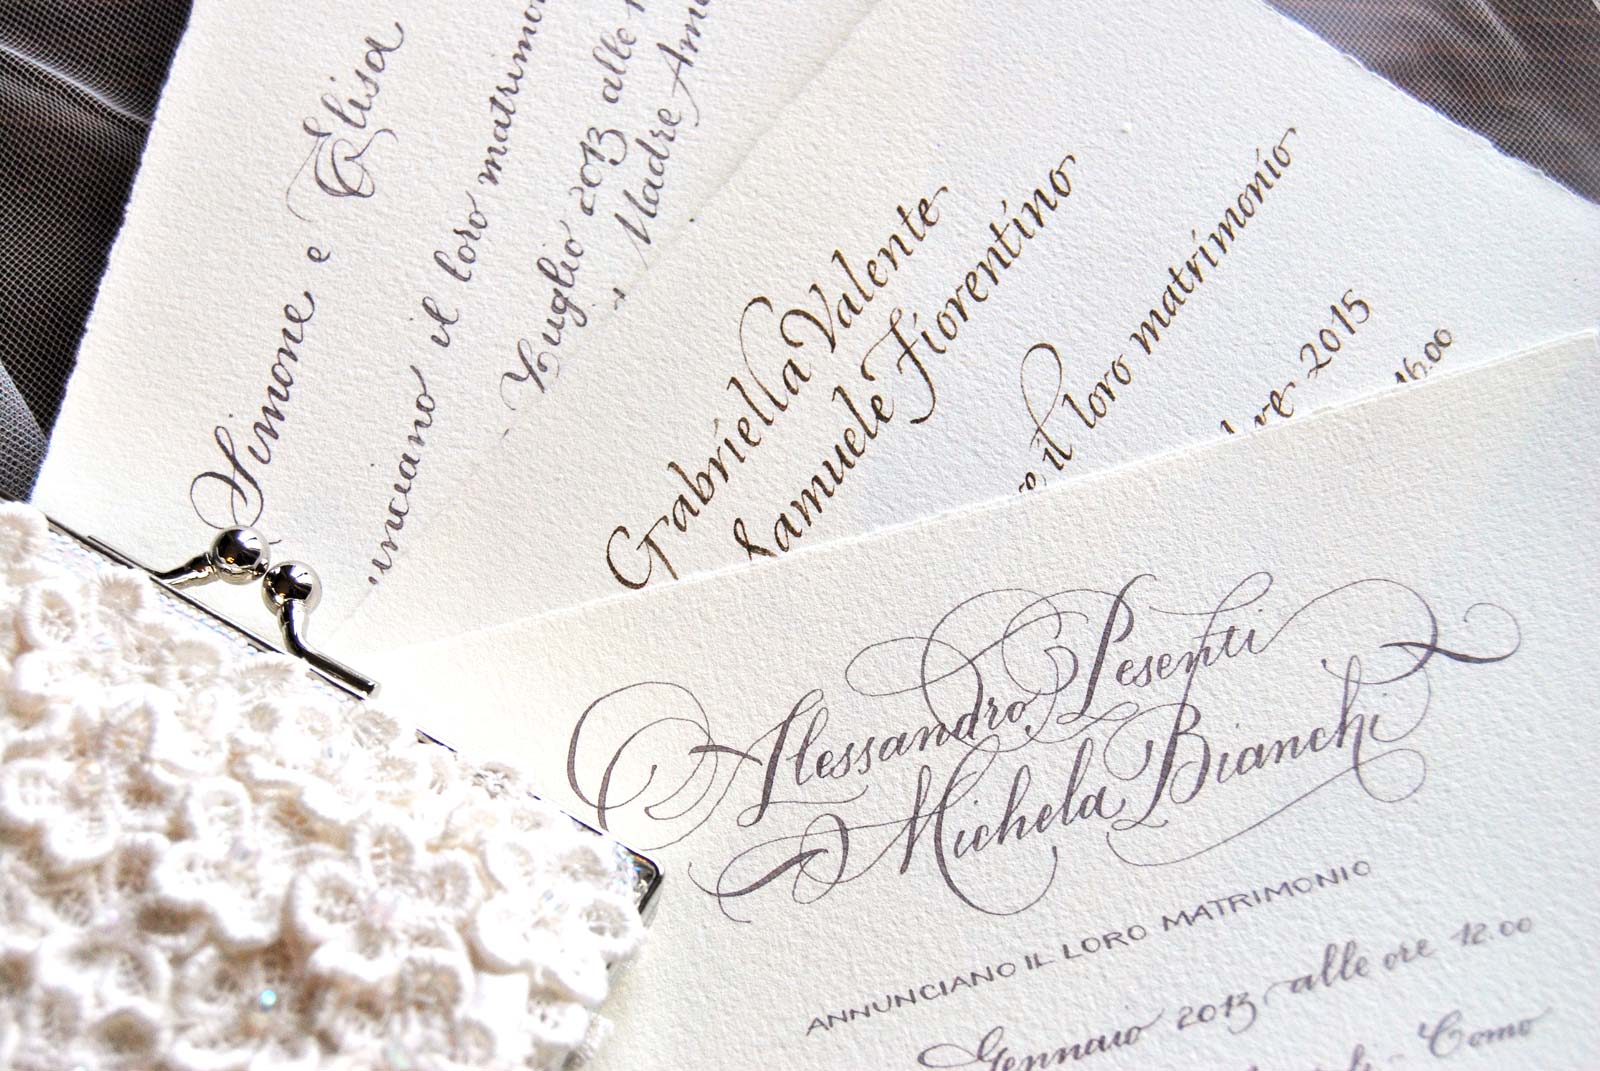 Simone e Elisa
il loro
Luglio 2013 alle
Madre
Gabriella Valente
Samuele Fiorentino
il loro matrimonio
2015
16.00
Alessandro Pesenti
Michela Bianchi
ANNUNCIANO IL LORO MATRIMONIO
Gennaio 2013 alle ore 12.00
- Como